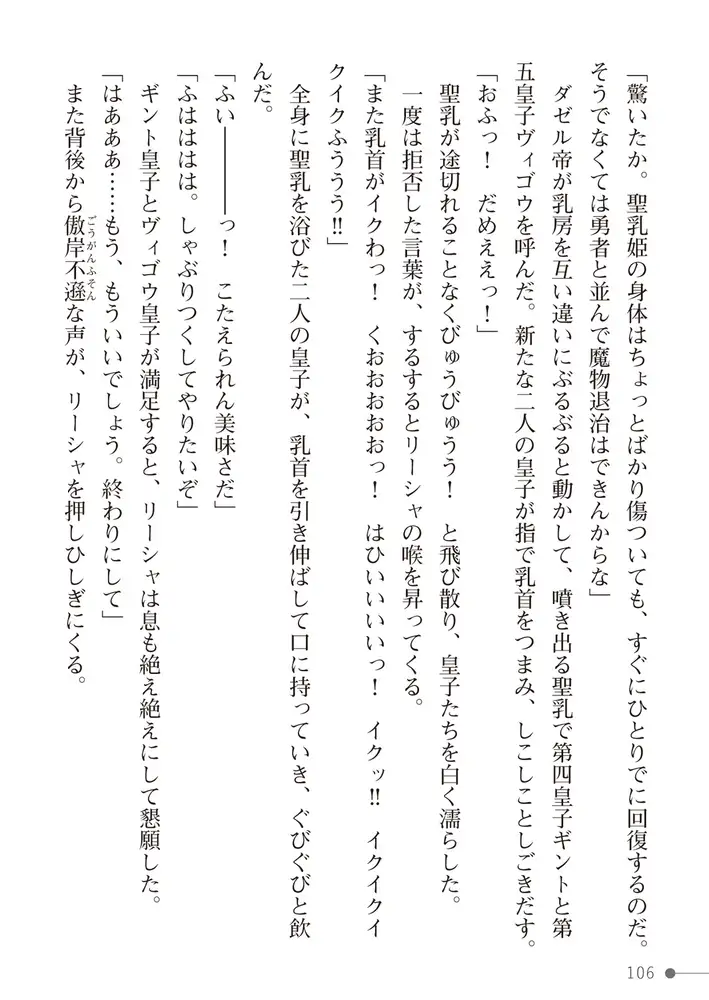 「驚いたか。聖乳姫の身体はちょっとばかり傷ついても、すぐにひとりでに回復するのだ。
そうでなくては勇者と並んで魔物退治はできんからな」
ダゼル帝が乳房を互い違いにぶるぶると動かして、噴き出る聖乳で第四皇子ギントと第
五皇子ヴィゴウを呼んだ。新たな二人の皇子が指で乳首をつまみ、しこしことしごきだす。
「おふっ！　だめええっ！」
聖乳が途切れることなくびゅうびゅうう！　と飛び散り、皇子たちを白く濡らした。
一度は拒否した言葉が、するするとリーシャの喉を昇ってくる。
「また乳首がイクわっ！　くおおおおおっ！　はひいいいいっ！　イクッ‼　イクイクイ
クイクふううう‼」
全身に聖乳を浴びた二人の皇子が、乳首を引き伸ばして口に持っていき、ぐびぐびと飲
んだ。
「ふい――――っ！　こたえられん美味さだ」
「ふはははは。しゃぶりつくしてやりたいぞ」
ギント皇子とヴィゴウ皇子が満足すると、リーシャは息も絶え絶えにして懇願した。
「はあああ……もう、もういいでしょう。終わりにして」
また背後から傲岸不遜な声が、リーシャを押しひしぎにくる。
ごうがんふそん
106